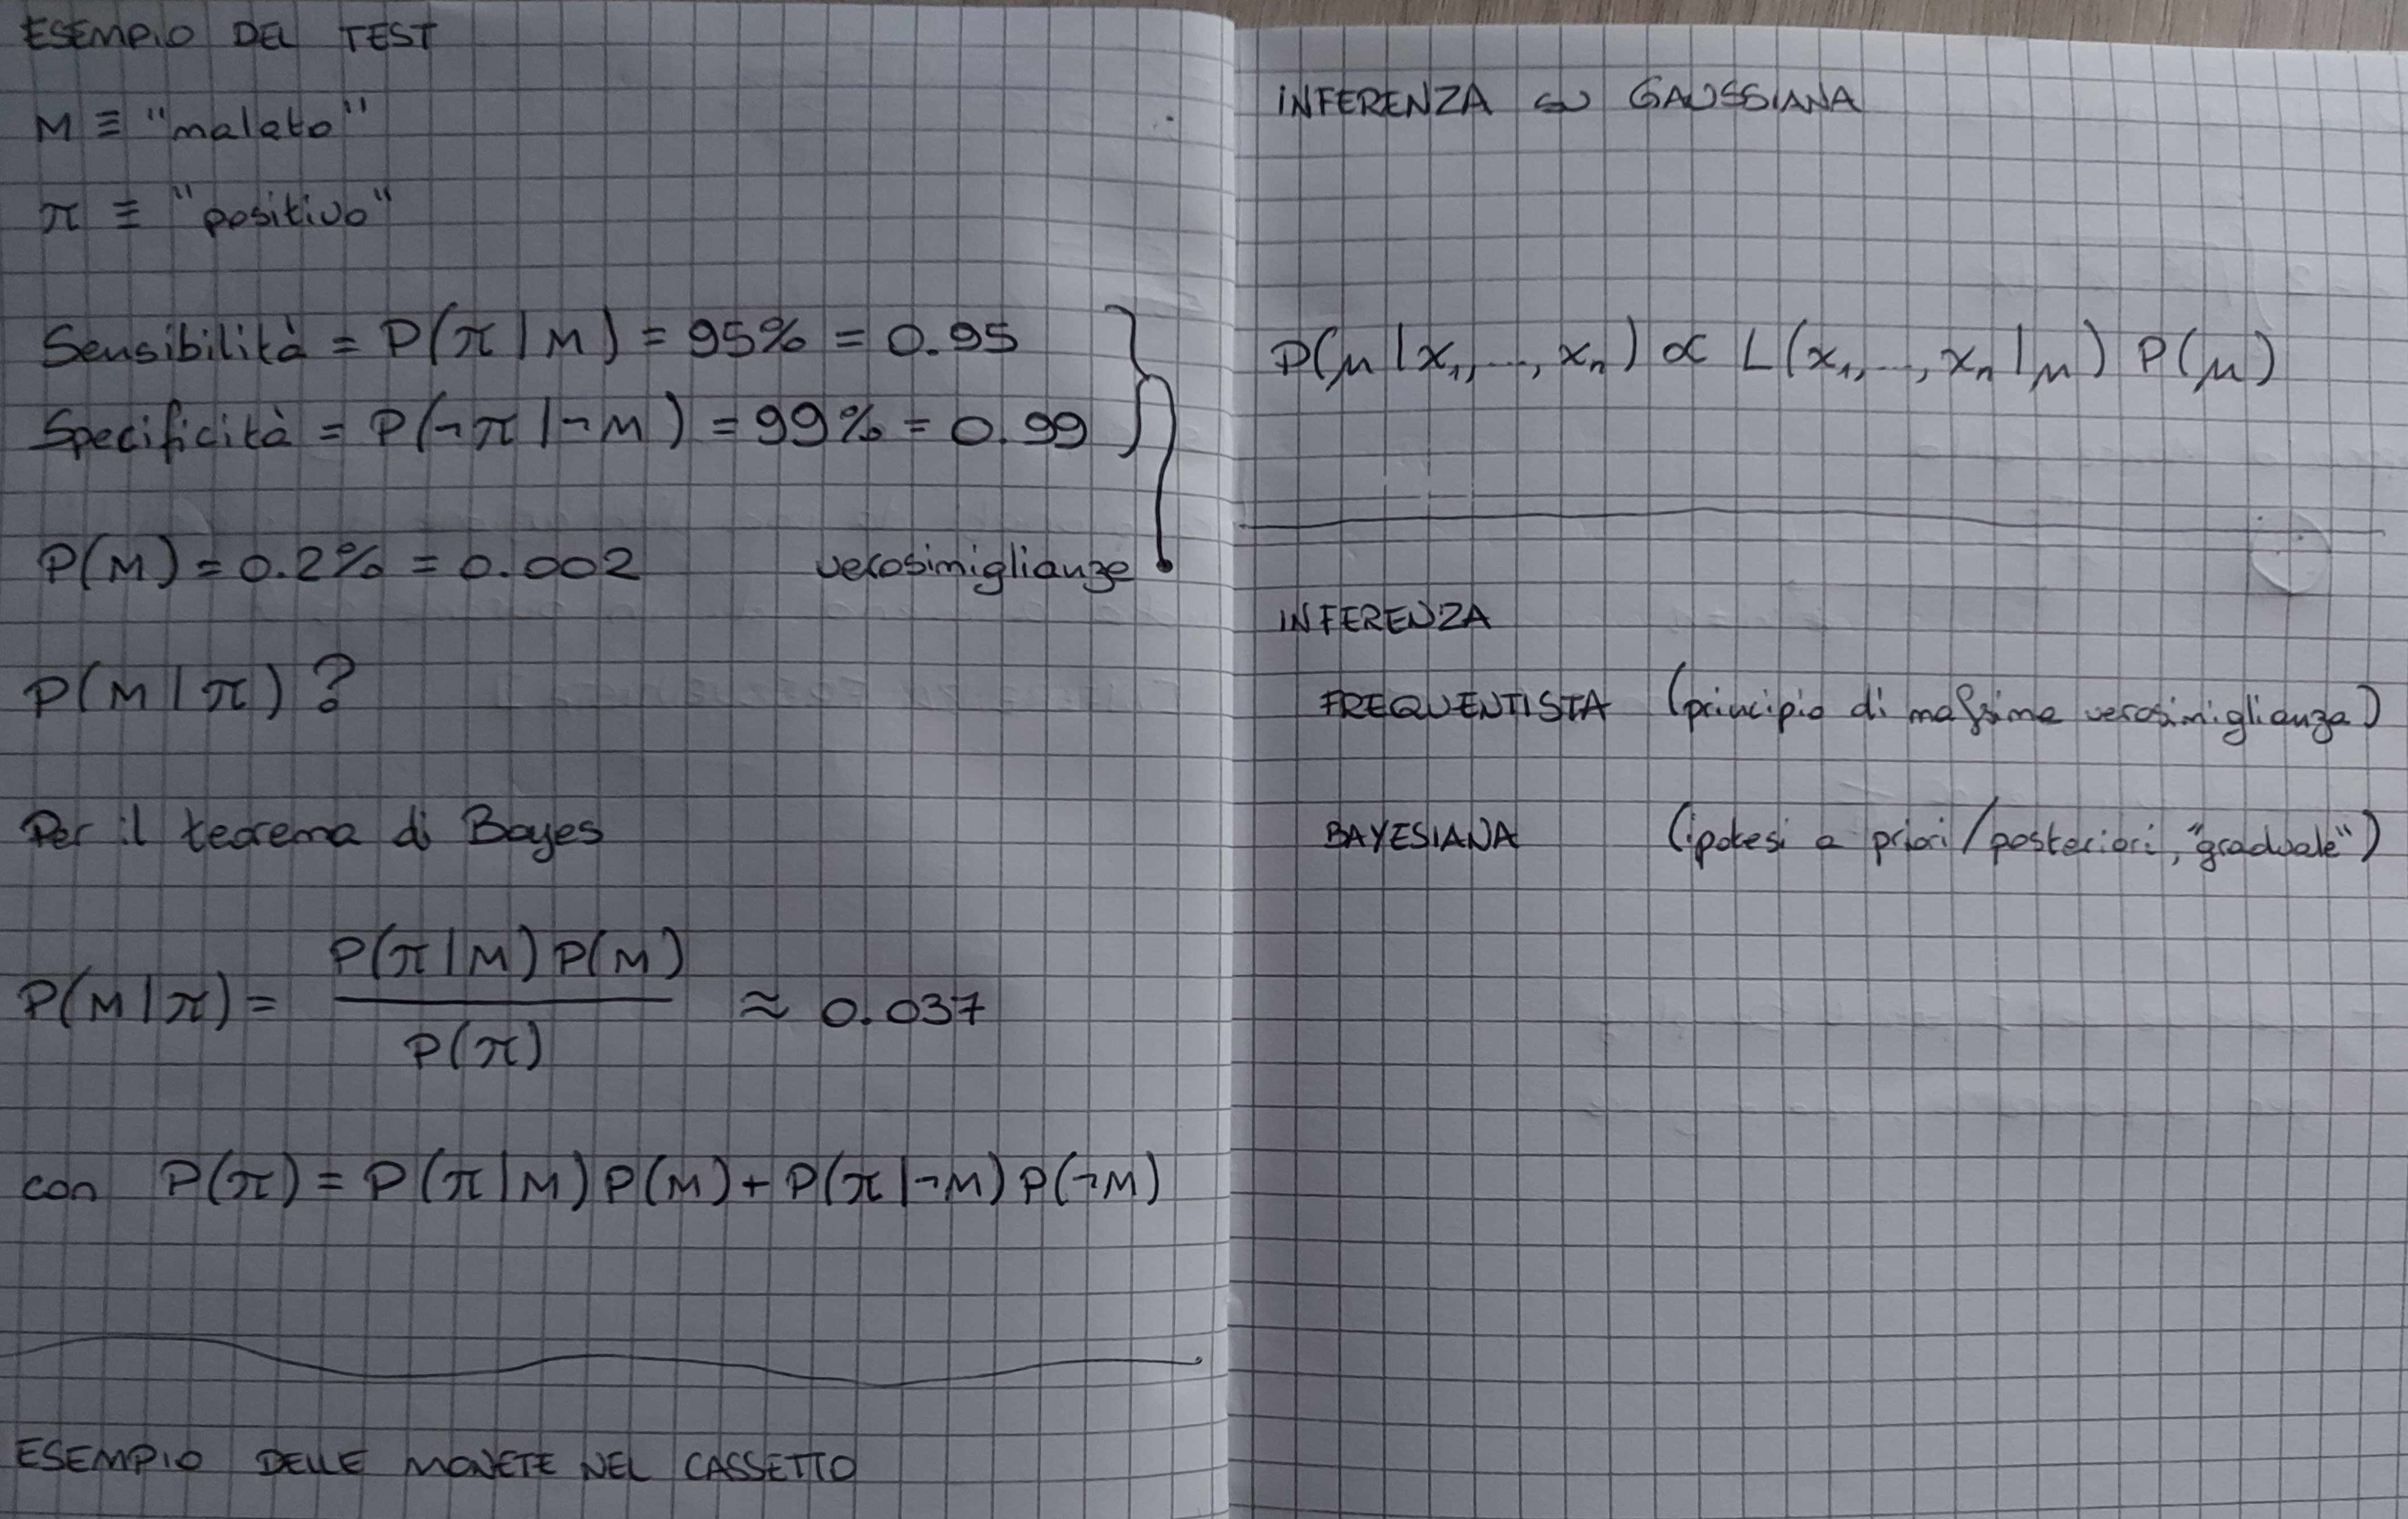 ESEMPIO DEL TEST
M ≡ "malato"
π ≡ "positivo"
Sensibilità = P(π|M) = 95% = 0.95
Specificità = P(¬π|¬M) = 99% = 0.99
P(M) = 0.2% = 0.002 verosimiglianze
P(M|π) ?
Per il teorema di Bayes
P(M|π) = P(π|M) P(M) / P(π) ≈ 0.037
con P(π) = P(π|M) P(M) + P(π|¬M) P(¬M)
ESEMPIO DELLE MONETE NEL CASSETTO
INFERENZA SU GAUSSIANA
P(μ|x₁,...,xₙ) ∝ L(x₁,...,xₙ|μ) P(μ)
INFERENZA
FREQUENTISTA (principio di massima verosimiglianza)
BAYESIANA (ipotesi a priori/posteriori, "graduale")